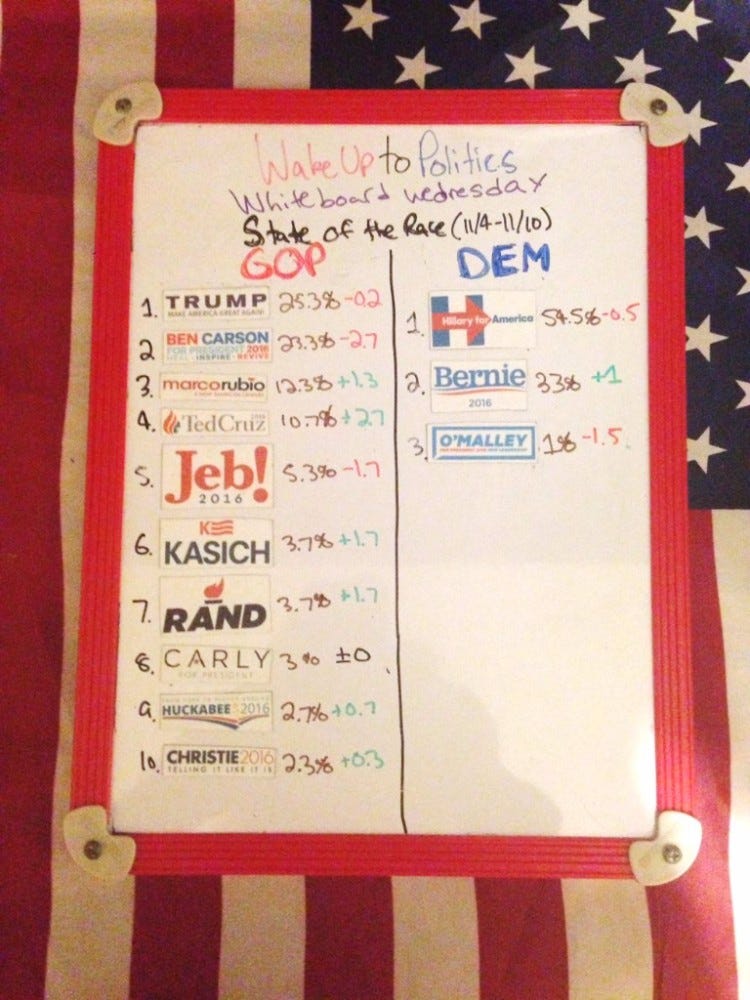 Wake Up to Politics
Whiteboard Wednesday
State of the Race (11/4-11/10)
GOP
1. TRUMP 25.3% -0.2
MAKE AMERICA GREAT AGAIN!
2 BEN CARSON 23.3% -2.7
FOR PRESIDENT 2016
HEAL · INSPIRE · REVIVE
3. marcorubio 12.3% +1.3
A NEW AMERICAN CENTURY
4. TedCruz 2016 10.7% +2.7
5. Jeb! 5.3% -1.7
2016
6. K
KASICH 3.7% +1.7
7. RAND 3.7% +1.7
8. CARLY 3% ±0
FOR PRESIDENT
9. HUCKABEE 2016 2.7% +0.7
10. CHRISTIE 2016 2.3% +0.3
TELLING IT LIKE IT IS
DEM
1. H Hillary for America 54.5% -0.5
2. Bernie 33% +1
2016
3. O'MALLEY 1% -1.5